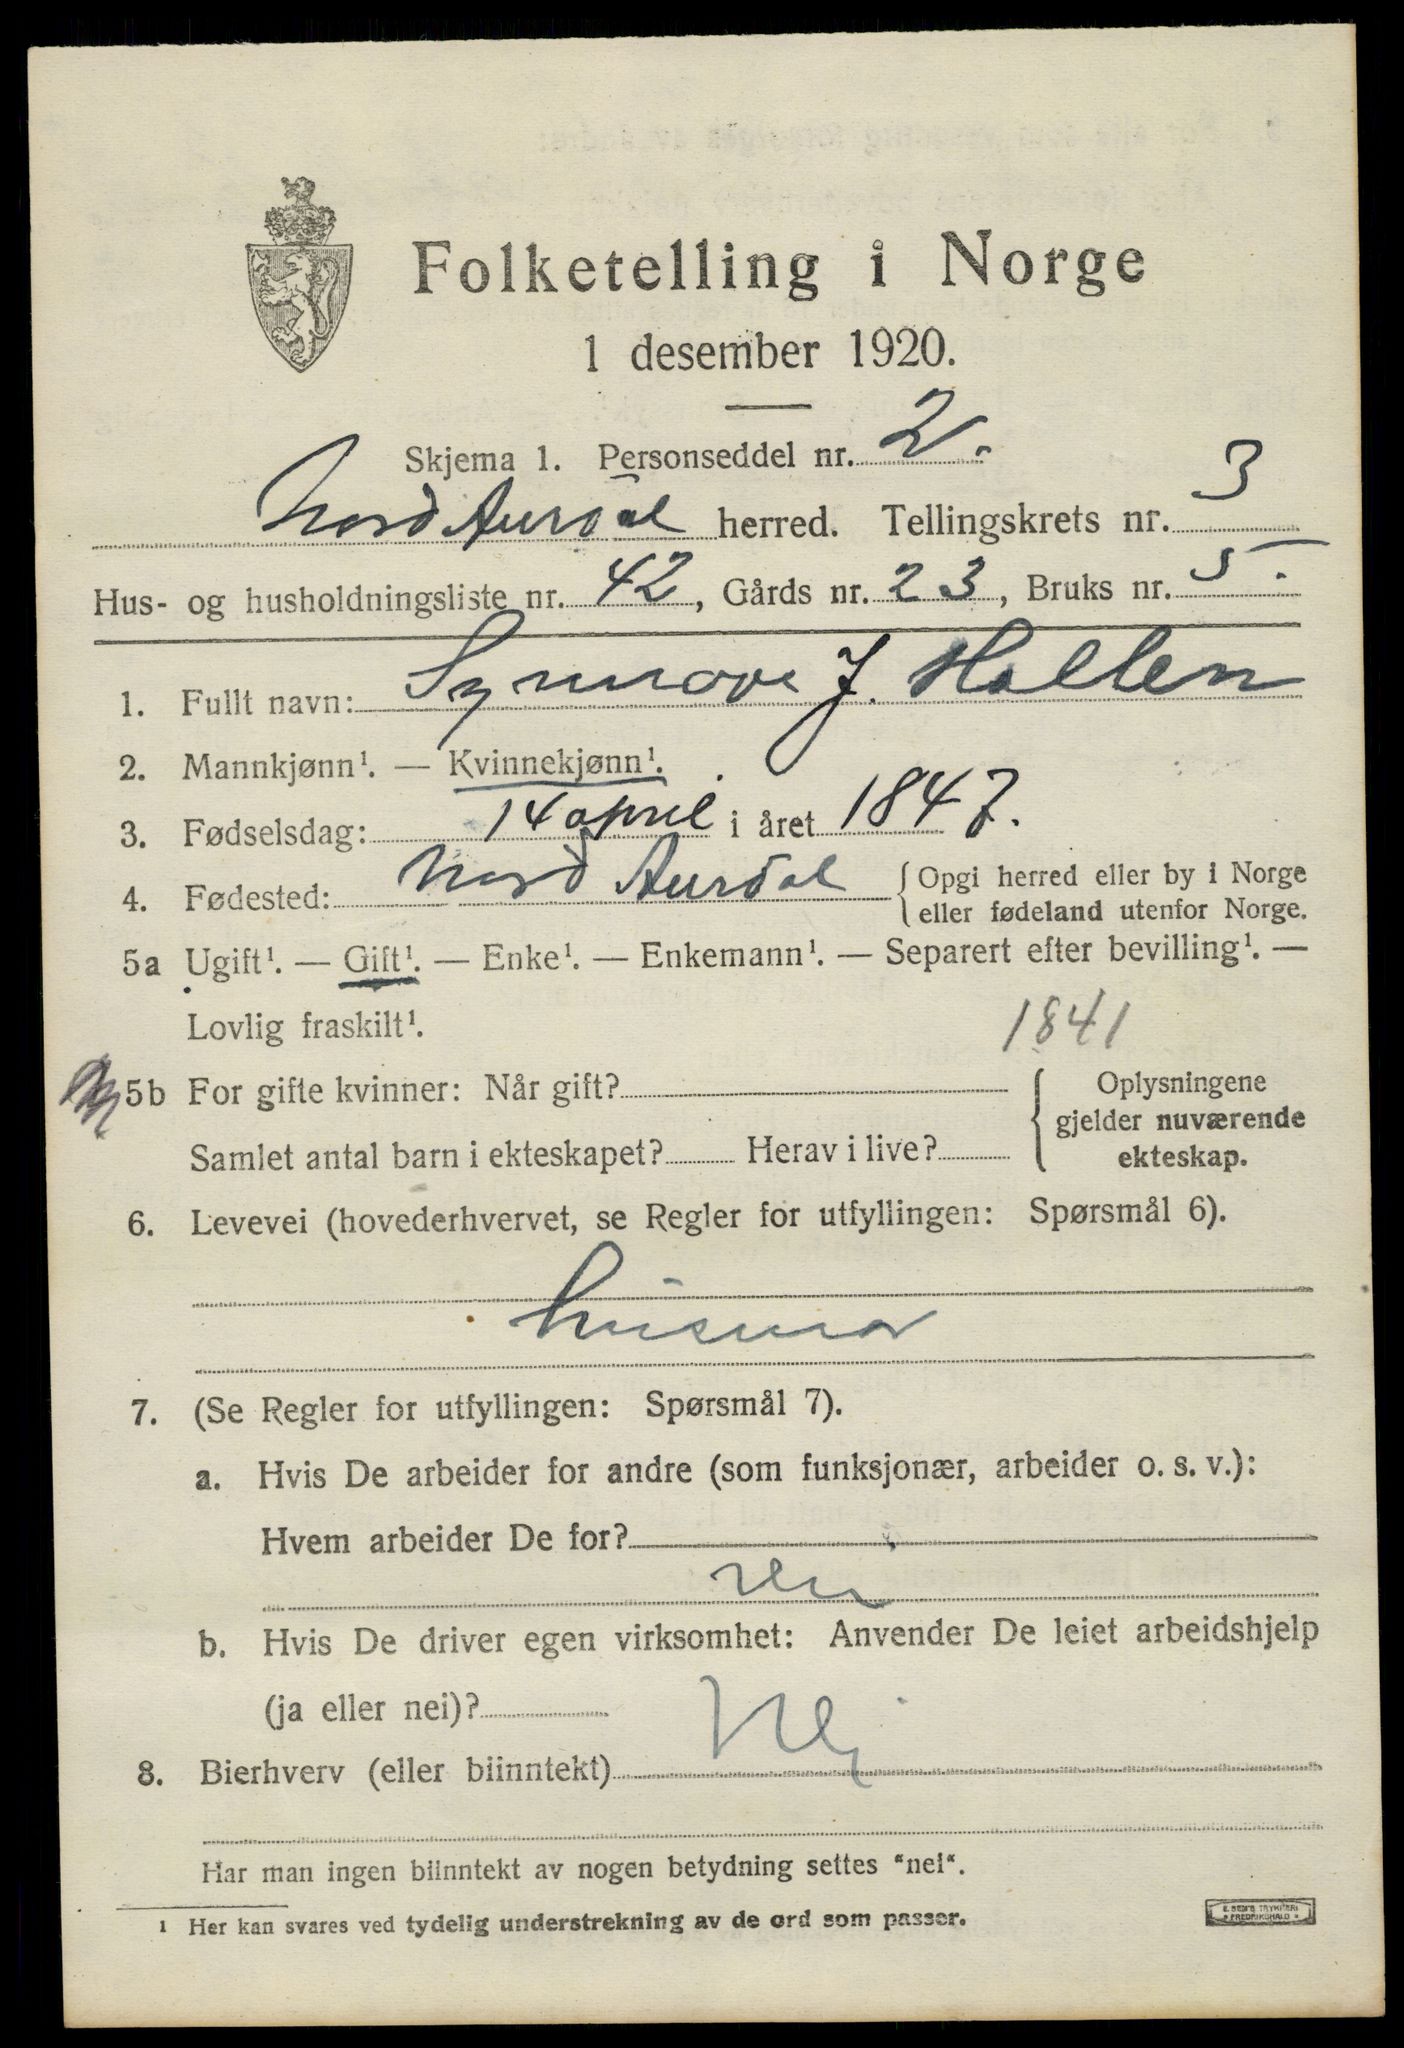 Folketelling i Norge
1 desember 1920.
Skjema 1. Personseddel nr. 2.
Nord Aurdal herred. Tellingskrets nr. 3
Hus- og husholdningsliste nr. 42, Gårds nr. 23, Bruks nr. 5.
1. Fullt navn: Synnove J. Hallen
2. Mannkjønn¹. — Kvinnekjønn¹.
3. Fødselsdag: 14 april i året 1847.
4. Fødested: Nord Aurdal { Opgi herred eller by i Norge
eller fødeland utenfor Norge.
5a Ugift¹. — Gift¹. — Enke¹. — Enkemann¹. — Separert efter bevilling¹. —
Lovlig fraskilt¹.
1841
5b For gifte kvinner: Når gift? { Oplysningene
gjelder nuværende
ekteskap.
Samlet antal barn i ekteskapet? Herav i live?
6. Levevei (hovederhvervet, se Regler for utfyllingen: Spørsmål 6).
husmor
7. (Se Regler for utfyllingen: Spørsmål 7).
a. Hvis De arbeider for andre (som funksjonær, arbeider o. s. v.):
Hvem arbeider De for?
b. Hvis De driver egen virksomhet: Anvender De leiet arbeidshjelp
(ja eller nei)?
Nej
8. Bierhverv (eller biinntekt)
Har man ingen biinntekt av nogen betydning settes "nei".
¹ Her kan svares ved tydelig understrekning av de ord som passer.
E. SEM'S TRYKKERI
* FREDRIKSHALD *